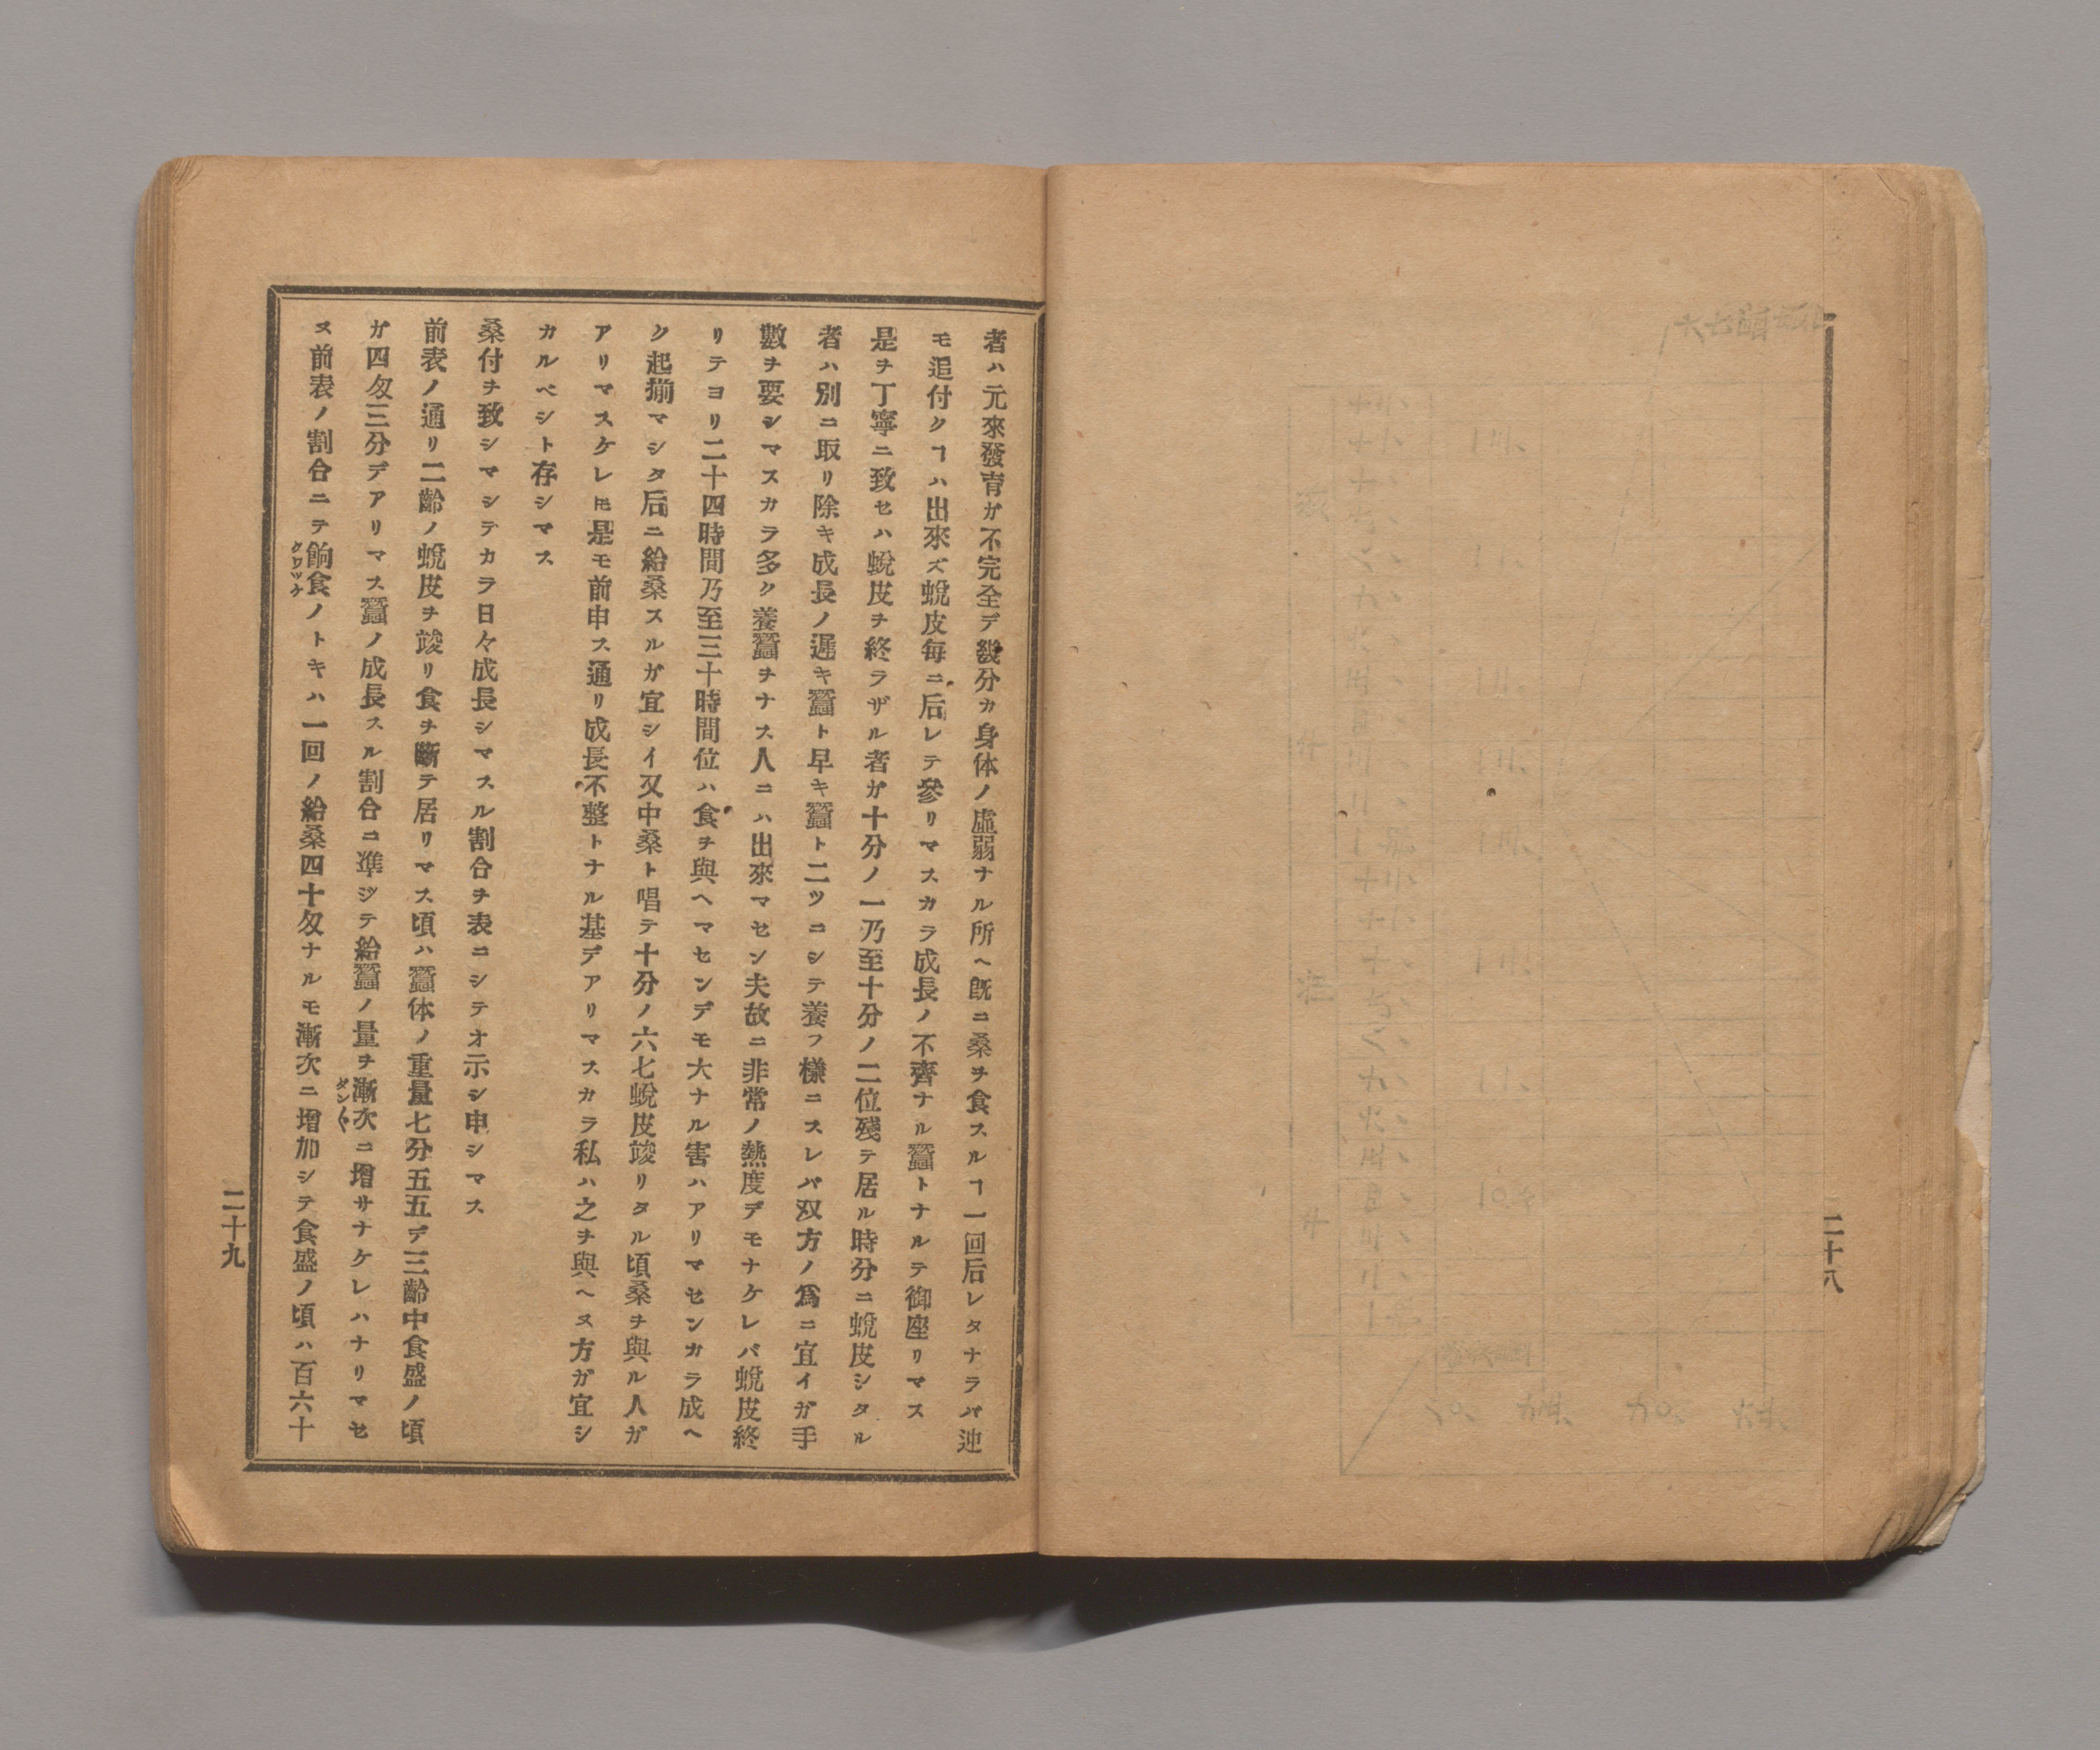 二十八
者ハ元來發育ガ不完全デ幾分カ身体ノ虛弱ナル所ヘ既ニ桑ヲ食スルヿ一回后レタナラバ迚
モ追付クヿハ出來ズ蛻皮每ニ后レテ參リマスカラ成長ノ不齊ナル蠶トナルテ御座リマス
是ヲ丁寧ニ致セハ蛻皮ヲ終ラザル者ガ十分ノ一乃至十分ノ二位殘テ居ル時分ニ蛻皮シタル
者ハ別ニ取リ除キ成長ノ遲キ蠶ト早キ蠶ト二ツニシテ養フ樣ニスレバ双方ノ爲ニ宜イガ手
數ヲ要シマスカラ多ク養蠶ヲナス人ニハ出來マセン夫故ニ非常ノ熱度デモナケレバ蛻皮終
リテヨリ二十四時間乃至三十時間位ハ食ヲ與ヘマセンデモ大ナル害ハアリマセンカラ成ヘ
ク起揃マシタ后ニ給桑スルガ宜シイ又中桑ト唱テ十分ノ六七蛻皮竣リタル頃桑ヲ與ル人ガ
アリマスケレ𪜈是モ前申ス通リ成長不整トナル基デアリマスカラ私ハ之ヲ與ヘヌ方ガ宜シ
カルベシト存シマス
桑付ヲ致シマシテカラ日々成長シマスル割合ヲ表ニシテオ示シ申シマス
前表ノ通リ二齡ノ蛻皮ヲ竣リ食ヲ斷テ居リマス頃ハ蠶体ノ重量七分五五デ三齡中食盛ノ頃
ガ四匁三分デアリマス蠶ノ成長スル割合ニ準ジテ給蠶ノ量ヲ漸次ニ增サナケレハナリマセ
ダン〱
ヌ前表ノ割合ニテ餉食ノトキハ一回ノ給桑四十匁ナルモ漸次ニ增加シテ食盛ノ頃ハ百六十
クワツケ
二十九